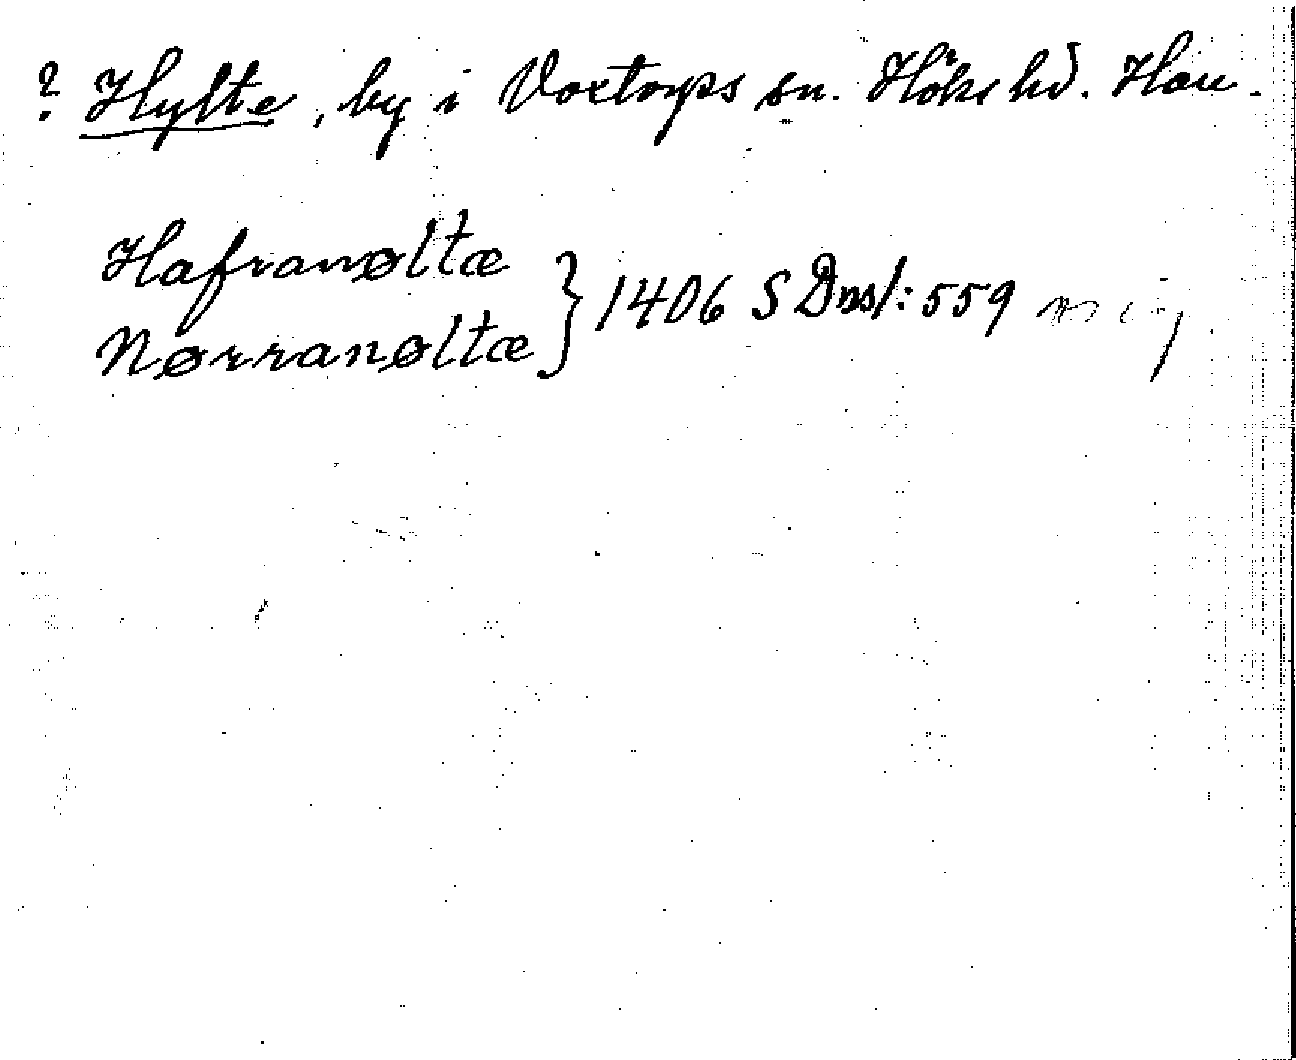 ? Hylte, by i Voxtorps sn. Höks hd. Hall.
Hafranøltæ
Nørranøltæ } 1406 SDns1:559